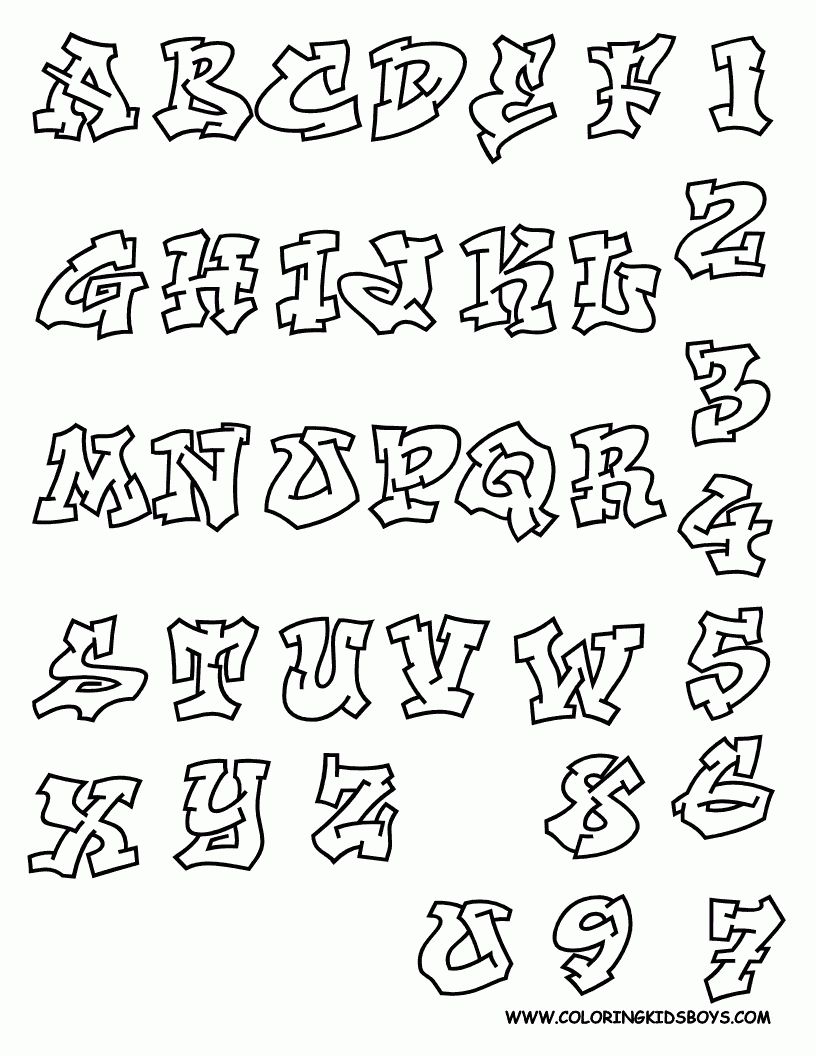 A B C D E F 1
2
G H I J K L
3
M N U P Q R
4
S T U V W 5
X Y Z 8 6
U 9 7
WWW.COLORINGKIDSBOYS.COM